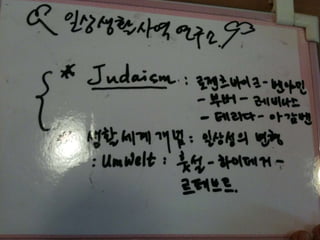 일상생활사역 연구소
* Judaism : 로젠츠바이크 - 벤야민
- 부버 - 레비나스
- 데리다 - 아감벤
* 생활세계 개념 : 일상성의 변형
: Umwelt : 훗설 - 하이데거 -
르페브르.